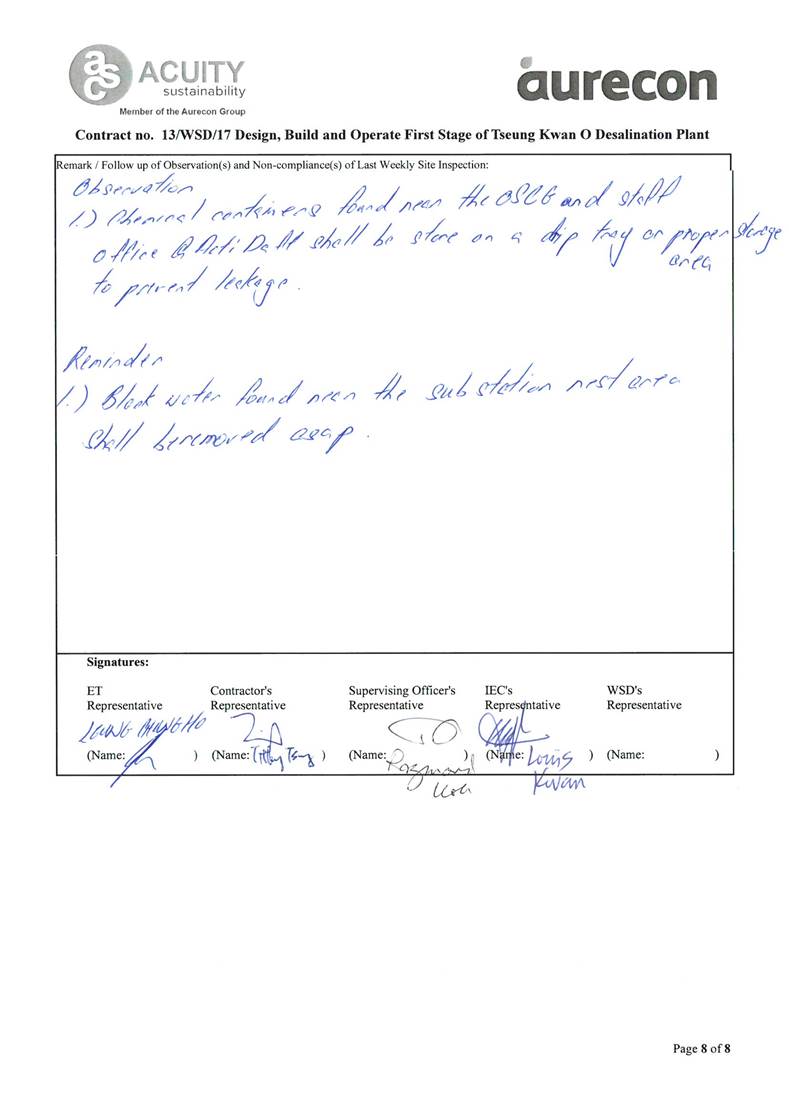 asc
ACUITY
sustainability
Member of the Aurecon Group
aurecon
Contract no. 13/WSD/17 Design, Build and Operate First Stage of Tseung Kwan O Desalination Plant
Remark / Follow up of Observation(s) and Non-compliance(s) of Last Weekly Site Inspection:
Observation
1.) Chemical containers found near the OSCG and staff
office @ Acti Daff shall be store on a drip tray or proper storage
area
to prevent leakage.
Reminder
1.) Black water found near the substation nest area
shall be removed asap.
Signatures:
ET Representative
Contractor's Representative
Supervising Officer's Representative
IEC's Representative
WSD's Representative
LEUNG CHUNG HO
(Name: ) (Name: Tiffany Tsang ) (Name: Raymond ) (Name: Louis ) (Name: )
Koh
Kwan
Page 8 of 8